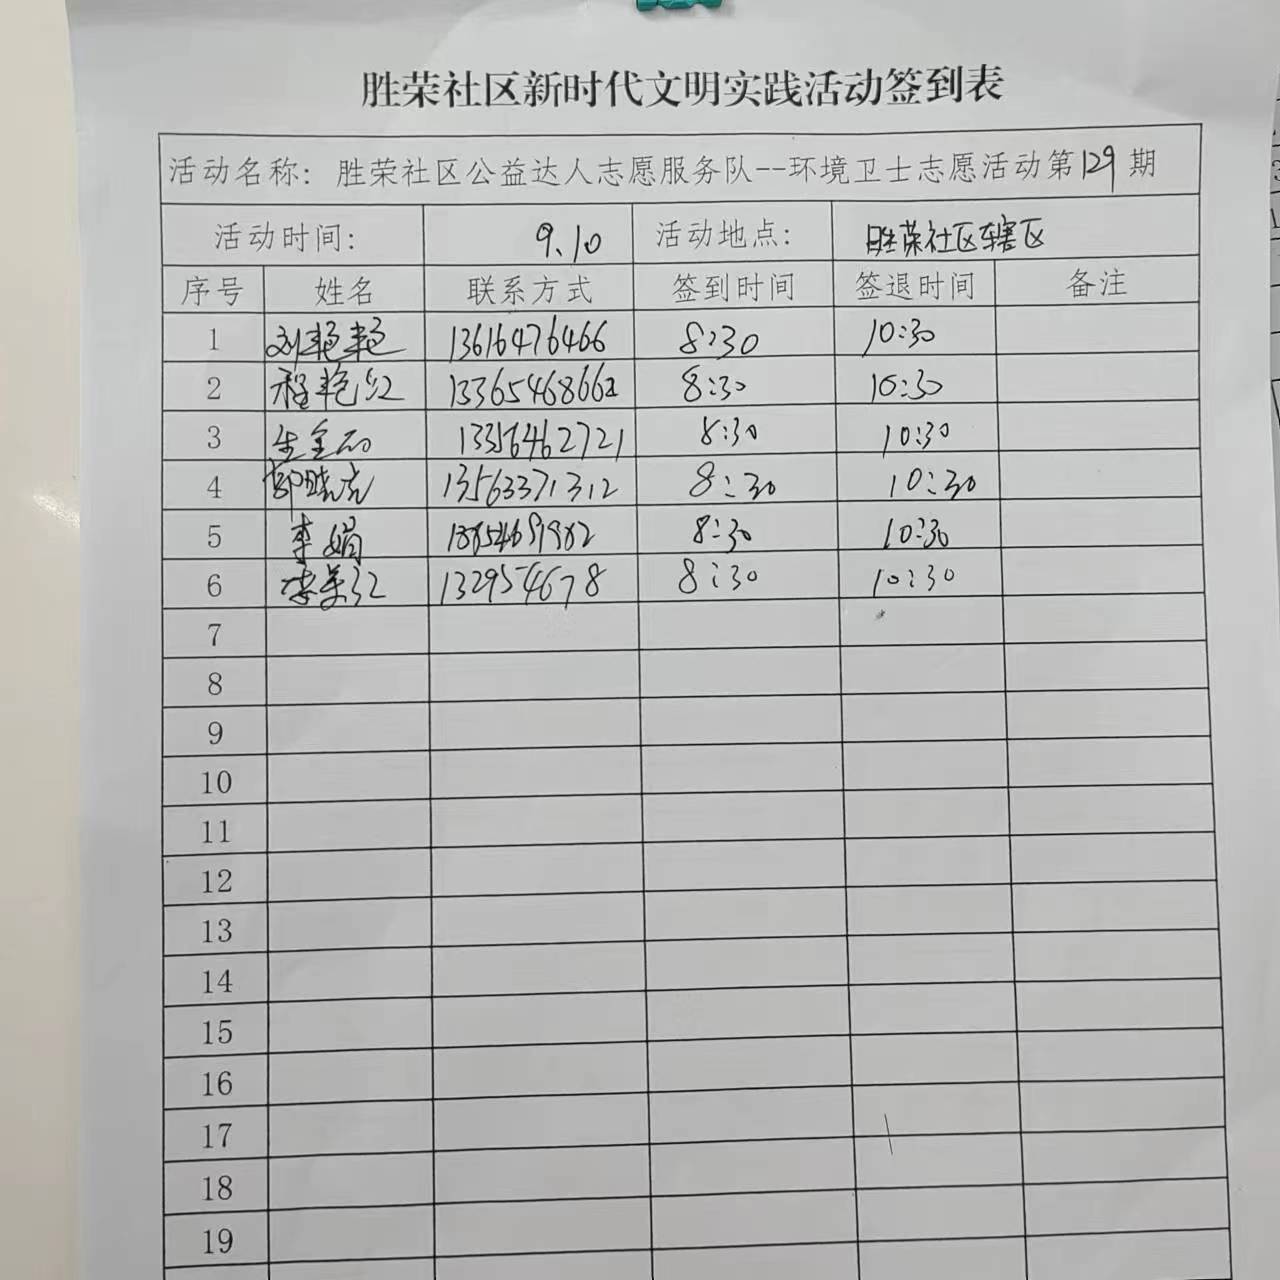 胜荣社区新时代文明实践活动签到表
活动名称：胜荣社区公益达人志愿服务队--环境卫士志愿活动第129期
活动时间： 9.10 活动地点： 胜荣社区辖区
序号 姓名 联系方式 签到时间 签退时间 备注
1 刘艳艳 13616476466 8:30 10:30
2 程艳红 8:30 10:30
3 13356462721 8:30 10:30
4 郭晓光 13563371312 8:30 10:30
5 李娟 8:30 10:30
6 132954678 8:30 10:30
7
8
9
10
11
12
13
14
15
16
17
18
19